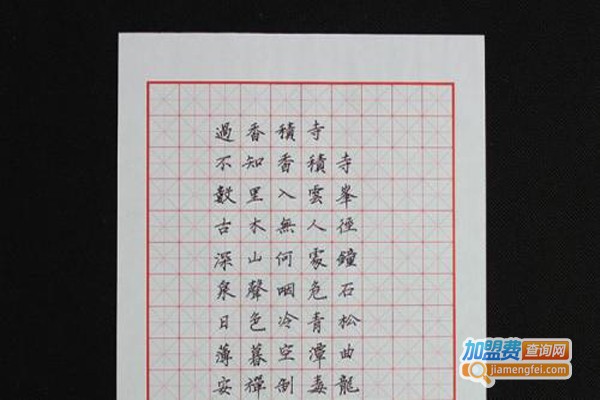 過香積寺
不知香積寺
數里入雲峯
古木無人徑
深山何處鐘
泉聲咽危石
日色冷青松
薄暮空潭曲
安禪制毒龍
加盟费查询网
jiamengfei.com